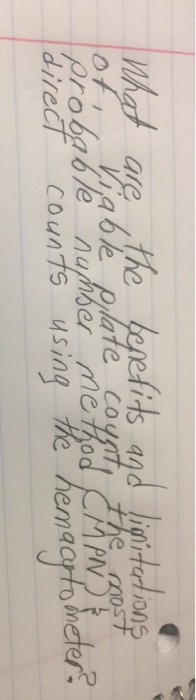 What are the benefits and limitations
of, viable plate count, the most
probable number method (MPN) &
direct counts using the hemacytometer?